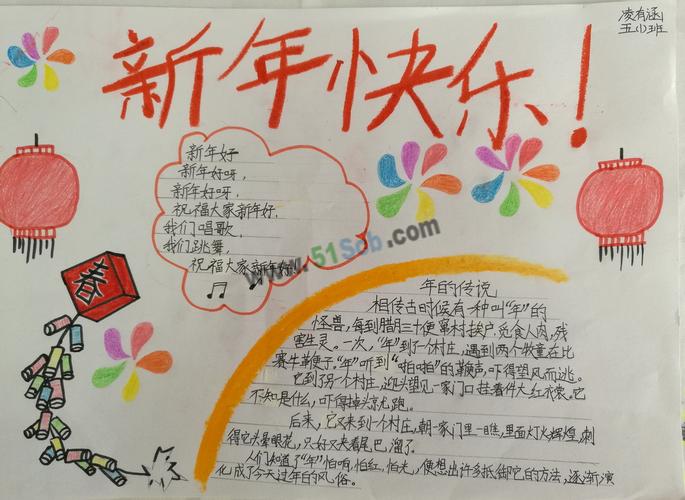 凌有涵
五(1)班
新年快乐!
新年好
新年好呀,
新年好呀,
祝福大家新年好.
我们唱歌,
我们跳舞,
祝福大家新年好!
www.51Scb.com
春
年的传说
相传古时候有一种叫“年”的
怪兽,每到腊月三十便窜村挨户,觅食人肉,残
害生灵。一次,“年”到了一个村庄,遇到两个牧童在比
赛牛革便子。“年”听到“啪啪”的鞭声,吓得望风而逃。
它到了另一个村庄,迎头望见一家门口挂着件大红衣裳。它
不知是什么,吓得掉头就跑。
后来,它又来到一个村庄,朝一家门里一瞧,里面灯火辉煌,刺
得它头晕眼花,只好又夹着尾巴溜了.
人们知道了“年”怕响,怕红,怕光,便想出许多抵御它的方法,逐渐演
化成了今天过年的风俗。